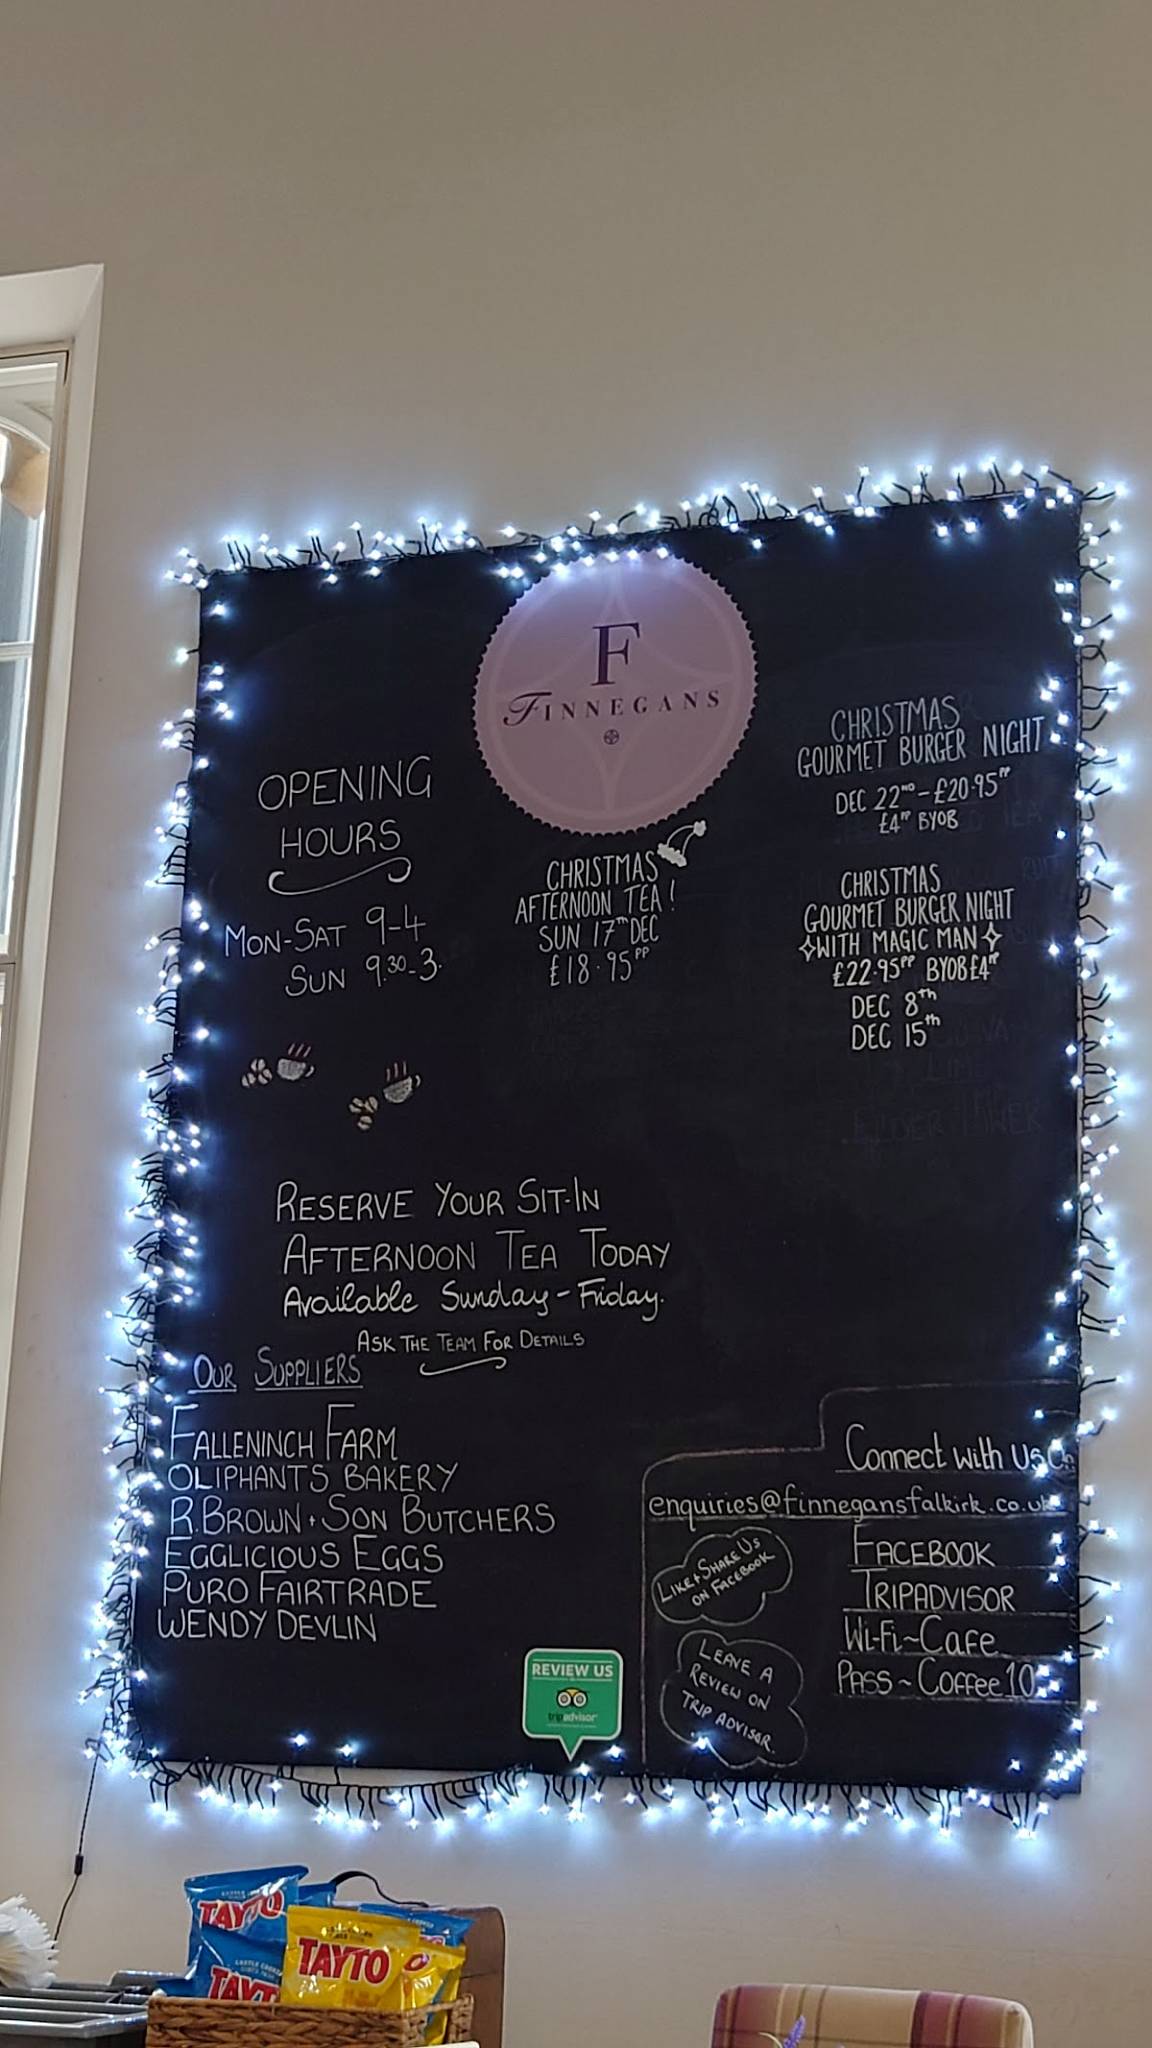 F
FINNEGANS
OPENING
HOURS
MON-SAT 9-4
SUN 9.30-3.
CHRISTMAS
AFTERNOON TEA!
SUN 17TH DEC
£18.95PP
CHRISTMAS
GOURMET BURGER NIGHT
DEC 22ND - £20.95PP
£4PP BYOB
CHRISTMAS
GOURMET BURGER NIGHT
WITH MAGIC MAN
£22.95PP BYOB £4PP
DEC 8th
DEC 15th
RESERVE YOUR SIT-IN
AFTERNOON TEA TODAY
Available Sunday - Friday.
ASK THE TEAM FOR DETAILS
OUR SUPPLIERS
FALLENINCH FARM
OLIPHANTS BAKERY
R.BROWN + SON BUTCHERS
EGGLICIOUS EGGS
PURO FAIRTRADE
WENDY DEVLIN
Connect with us
enquiries@finnegansfalkirk.co.uk
FACEBOOK
TRIPADVISOR
Wi-Fi~CAFE
PASS~COFFEE
LIKE + SHARE US
ON FACEBOOK
LEAVE A
REVIEW ON
TRIP ADVISOR.
REVIEW US
tripadvisor
TAYTO
TAYTO
TAYT